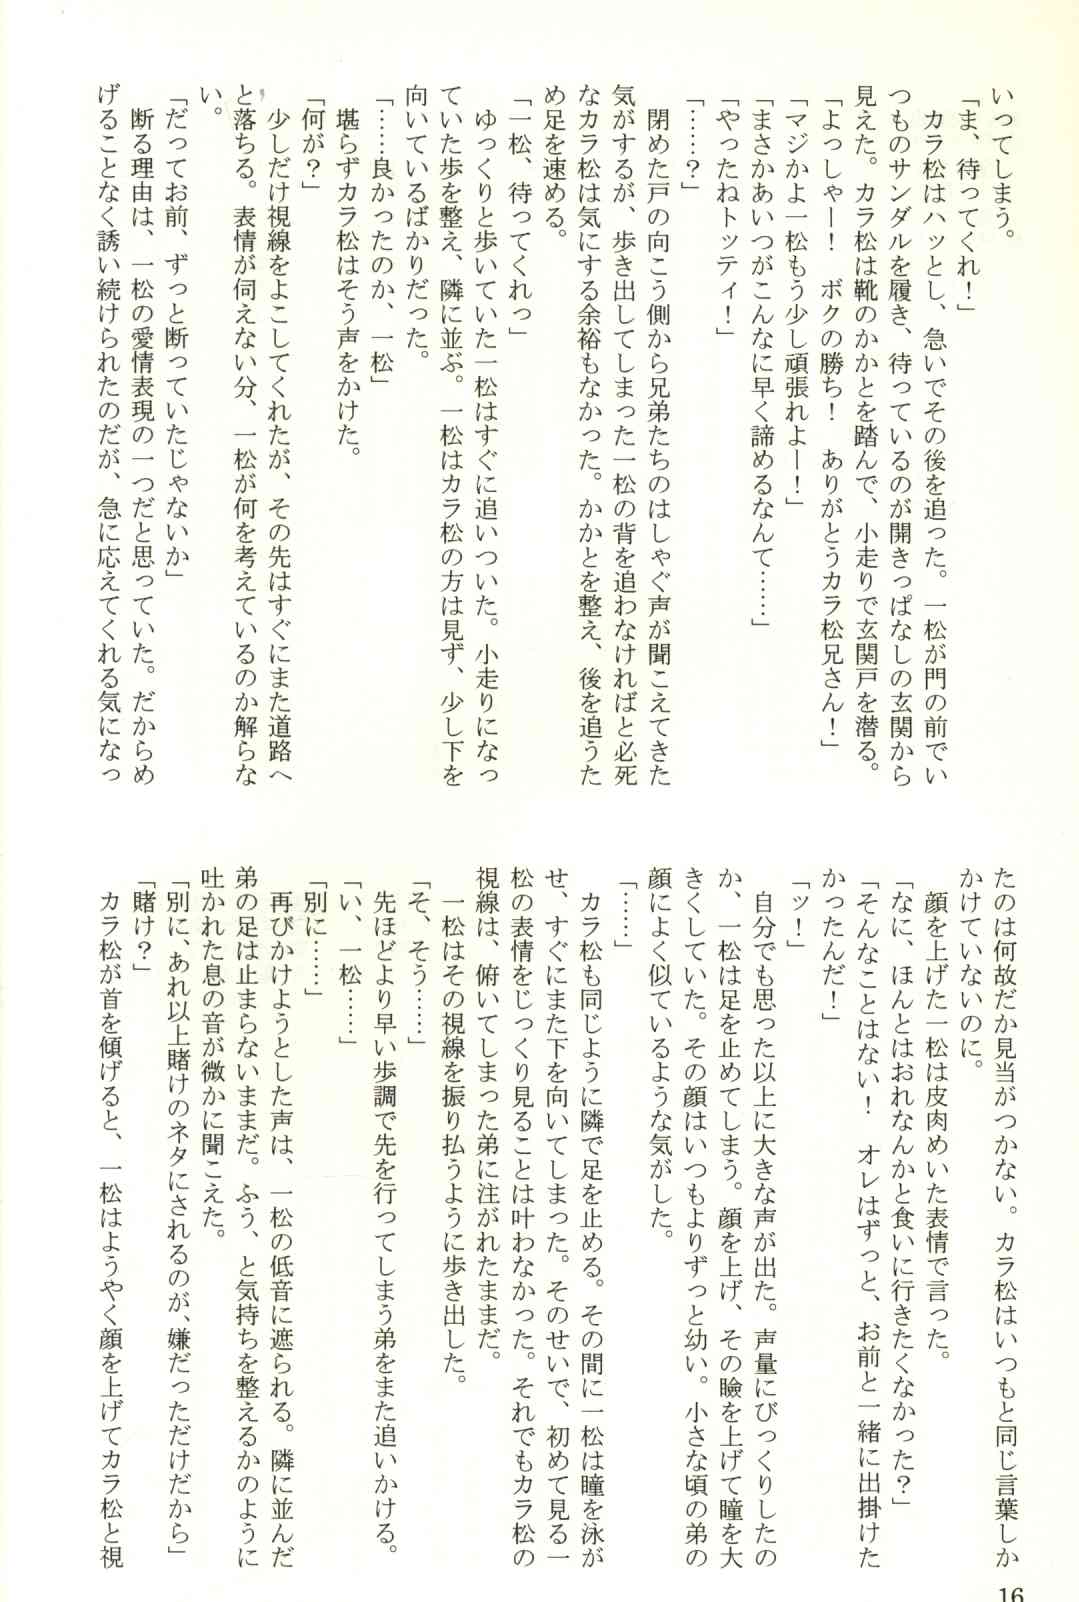 いってしまう。
「ま、待ってくれ！」
カラ松はハッとし、急いでその後を追った。一松が門の前でい
つものサンダルを履き、待っているのが開きっぱなしの玄関から
見えた。カラ松は靴のかかとを踏んで、小走りで玄関戸を潜る。
「よっしゃー！　ボクの勝ち！　ありがとうカラ松兄さん！」
「マジかよ一松もう少し頑張れよー！」
「まさかあいつがこんなに早く諦めるなんて……」
「やったねトッティ！」
「……？」
閉めた戸の向こう側から兄弟たちのはしゃぐ声が聞こえてきた
気がするが、歩き出してしまった一松の背を追わなければと必死
なカラ松は気にする余裕もなかった。かかとを整え、後を追うた
め足を速める。
「一松、待ってくれっ」
ゆっくりと歩いていた一松はすぐに追いついた。小走りになっ
ていた歩を整え、隣に並ぶ。一松はカラ松の方は見ず、少し下を
向いているばかりだった。
「……良かったのか、一松」
堪らずカラ松はそう声をかけた。
「何が？」
少しだけ視線をよこしてくれたが、その先はすぐにまた道路へ
と落ちる。表情が伺えない分、一松が何を考えているのか解らな
い。
「だってお前、ずっと断っていたじゃないか」
断る理由は、一松の愛情表現の一つだと思っていた。だからめ
げることなく誘い続けられたのだが、急に応えてくれる気になっ
たのは何故だか見当がつかない。カラ松はいつもと同じ言葉しか
かけていないのに。
顔を上げた一松は皮肉めいた表情で言った。
「なに、ほんとはおれなんかと食いに行きたくなかった？」
「そんなことはない！　オレはずっと、お前と一緒に出掛けた
かったんだ！」
「ッ！」
自分でも思った以上に大きな声が出た。声量にびっくりしたの
か、一松は足を止めてしまう。顔を上げ、その瞼を上げて瞳を大
きくしていた。その顔はいつもよりずっと幼い。小さな頃の弟の
顔によく似ているような気がした。
「……」
カラ松も同じように隣で足を止める。その間に一松は瞳を泳が
せ、すぐにまた下を向いてしまった。そのせいで、初めて見る一
松の表情をじっくり見ることは叶わなかった。それでもカラ松の
視線は、俯いてしまった弟に注がれたままだ。
一松はその視線を振り払うように歩き出した。
「そ、そう……」
先ほどより早い歩調で先を行ってしまう弟をまた追いかける。
「い、一松……」
「別に……」
再びかけようとした声は、一松の低音に遮られる。隣に並んだ
弟の足は止まらないままだ。ふう、と気持ちを整えるかのように
吐かれた息の音が微かに聞こえた。
「別に、あれ以上賭けのネタにされるのが、嫌だっただけだから」
「賭け？」
カラ松が首を傾げると、一松はようやく顔を上げてカラ松と視
16